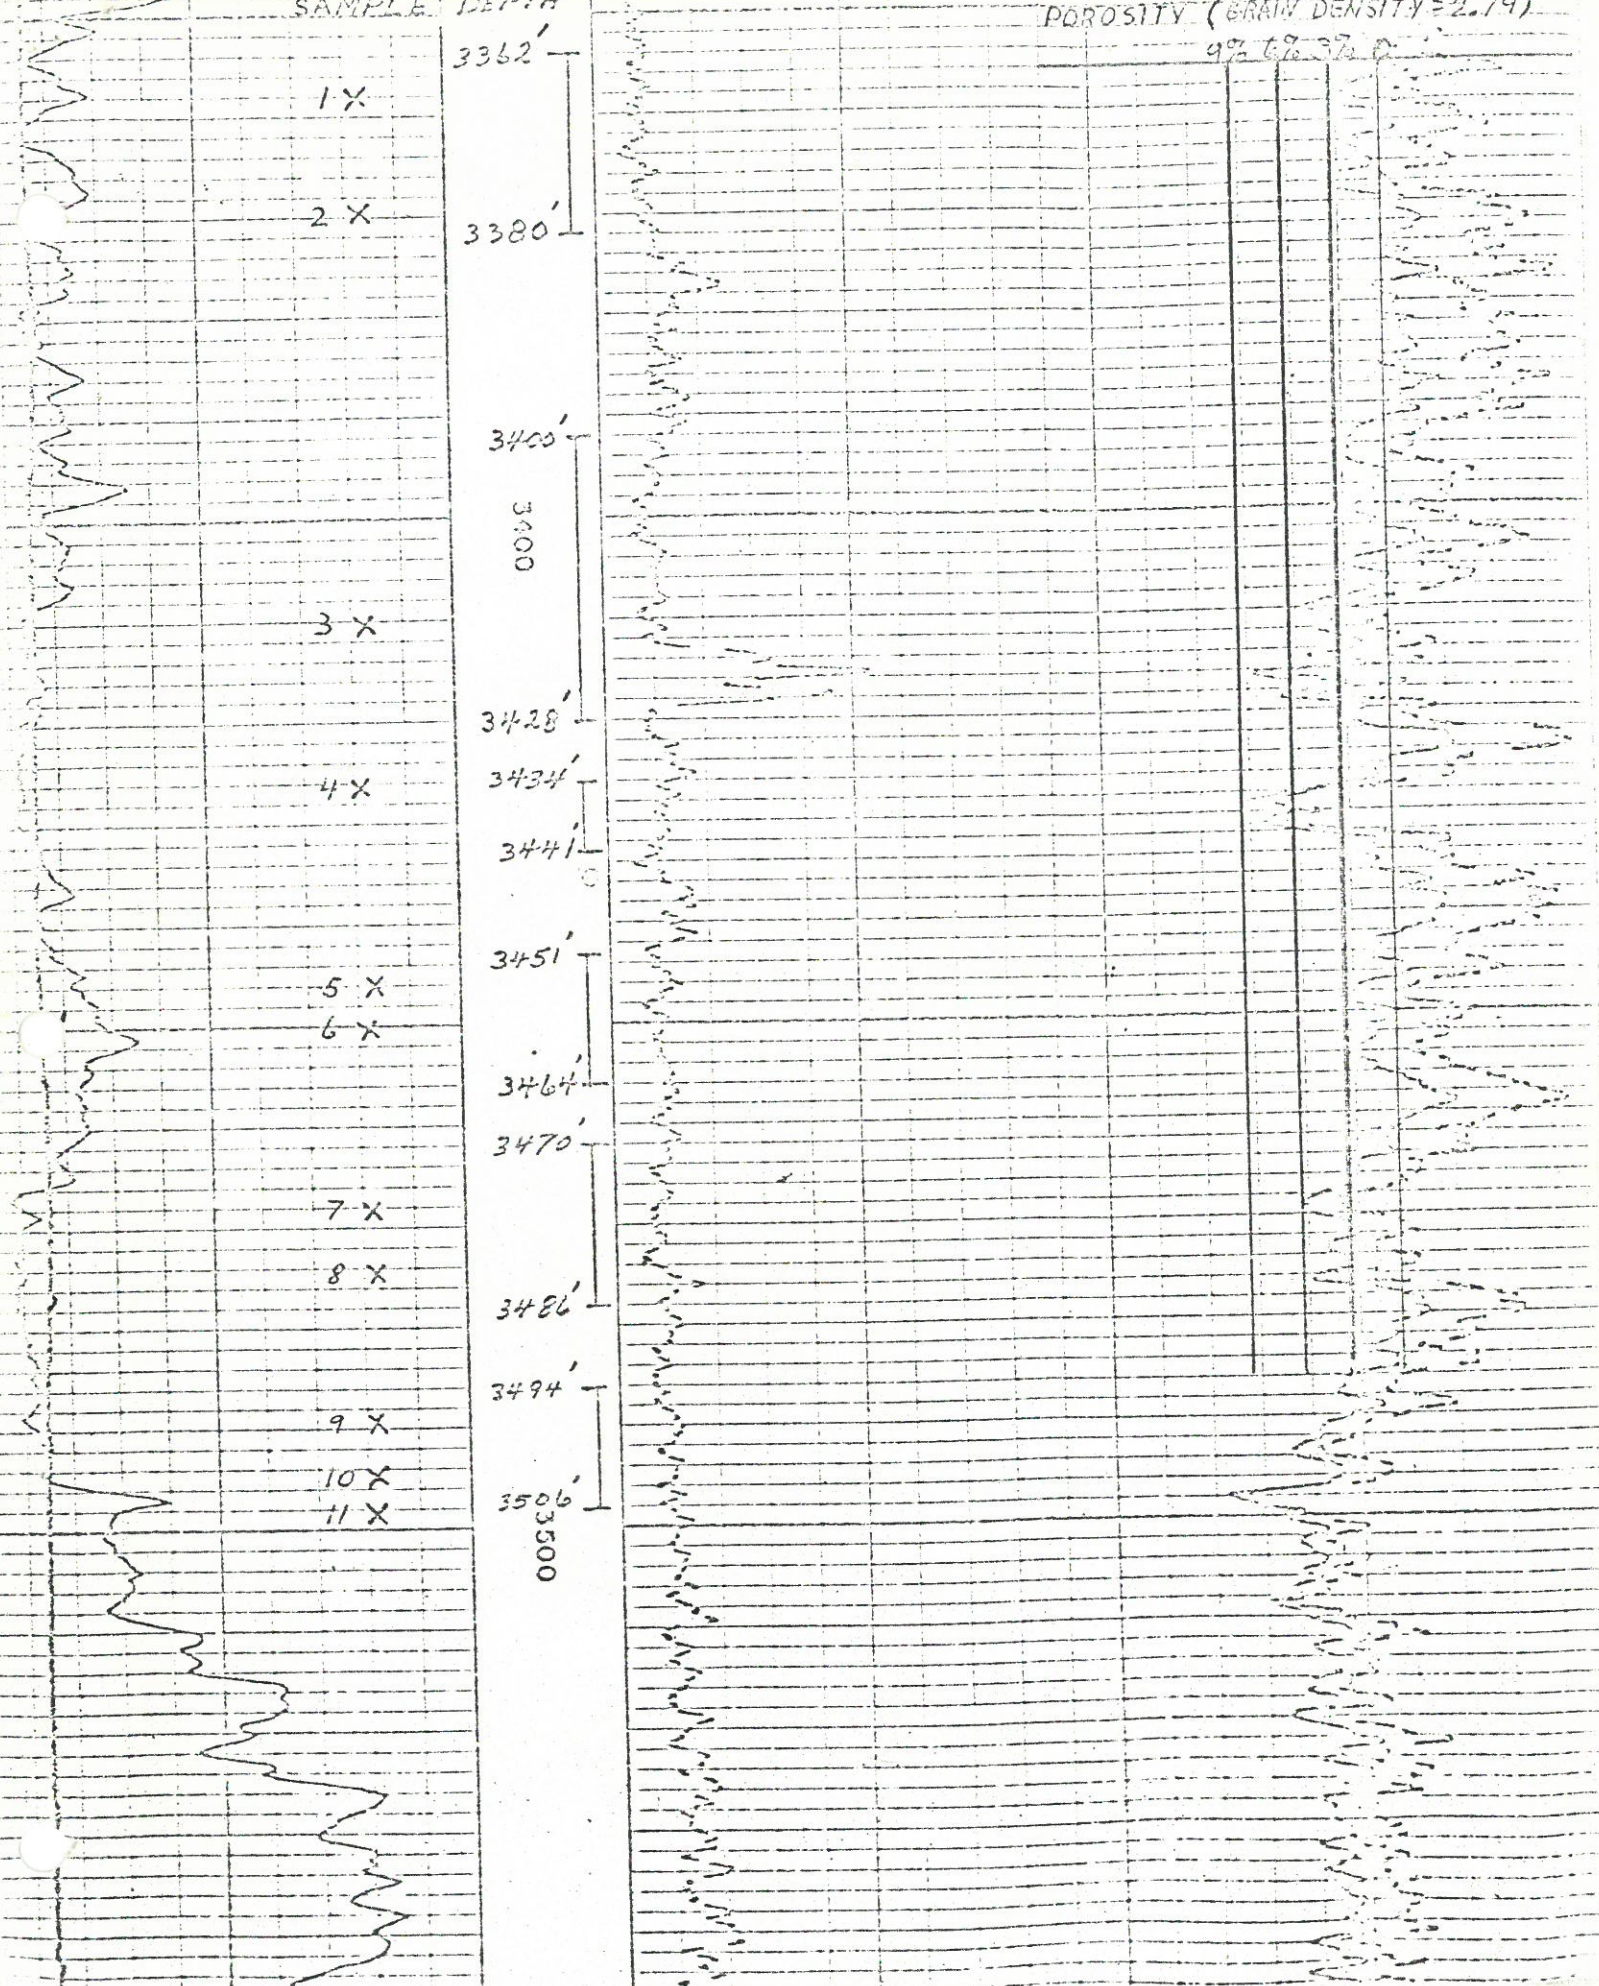 SAMPLE DEPTH
POROSITY (GRAIN DENSITY = 2.79)
9% 6% 3% 0
3362'
1 X
2 X
3380'
3400'
3400
3 X
3428'
3434'
4 X
3441'
3451'
5 X
6 X
3464'
3470'
7 X
8 X
3486'
3494'
9 X
10 X
3506'
11 X
3500